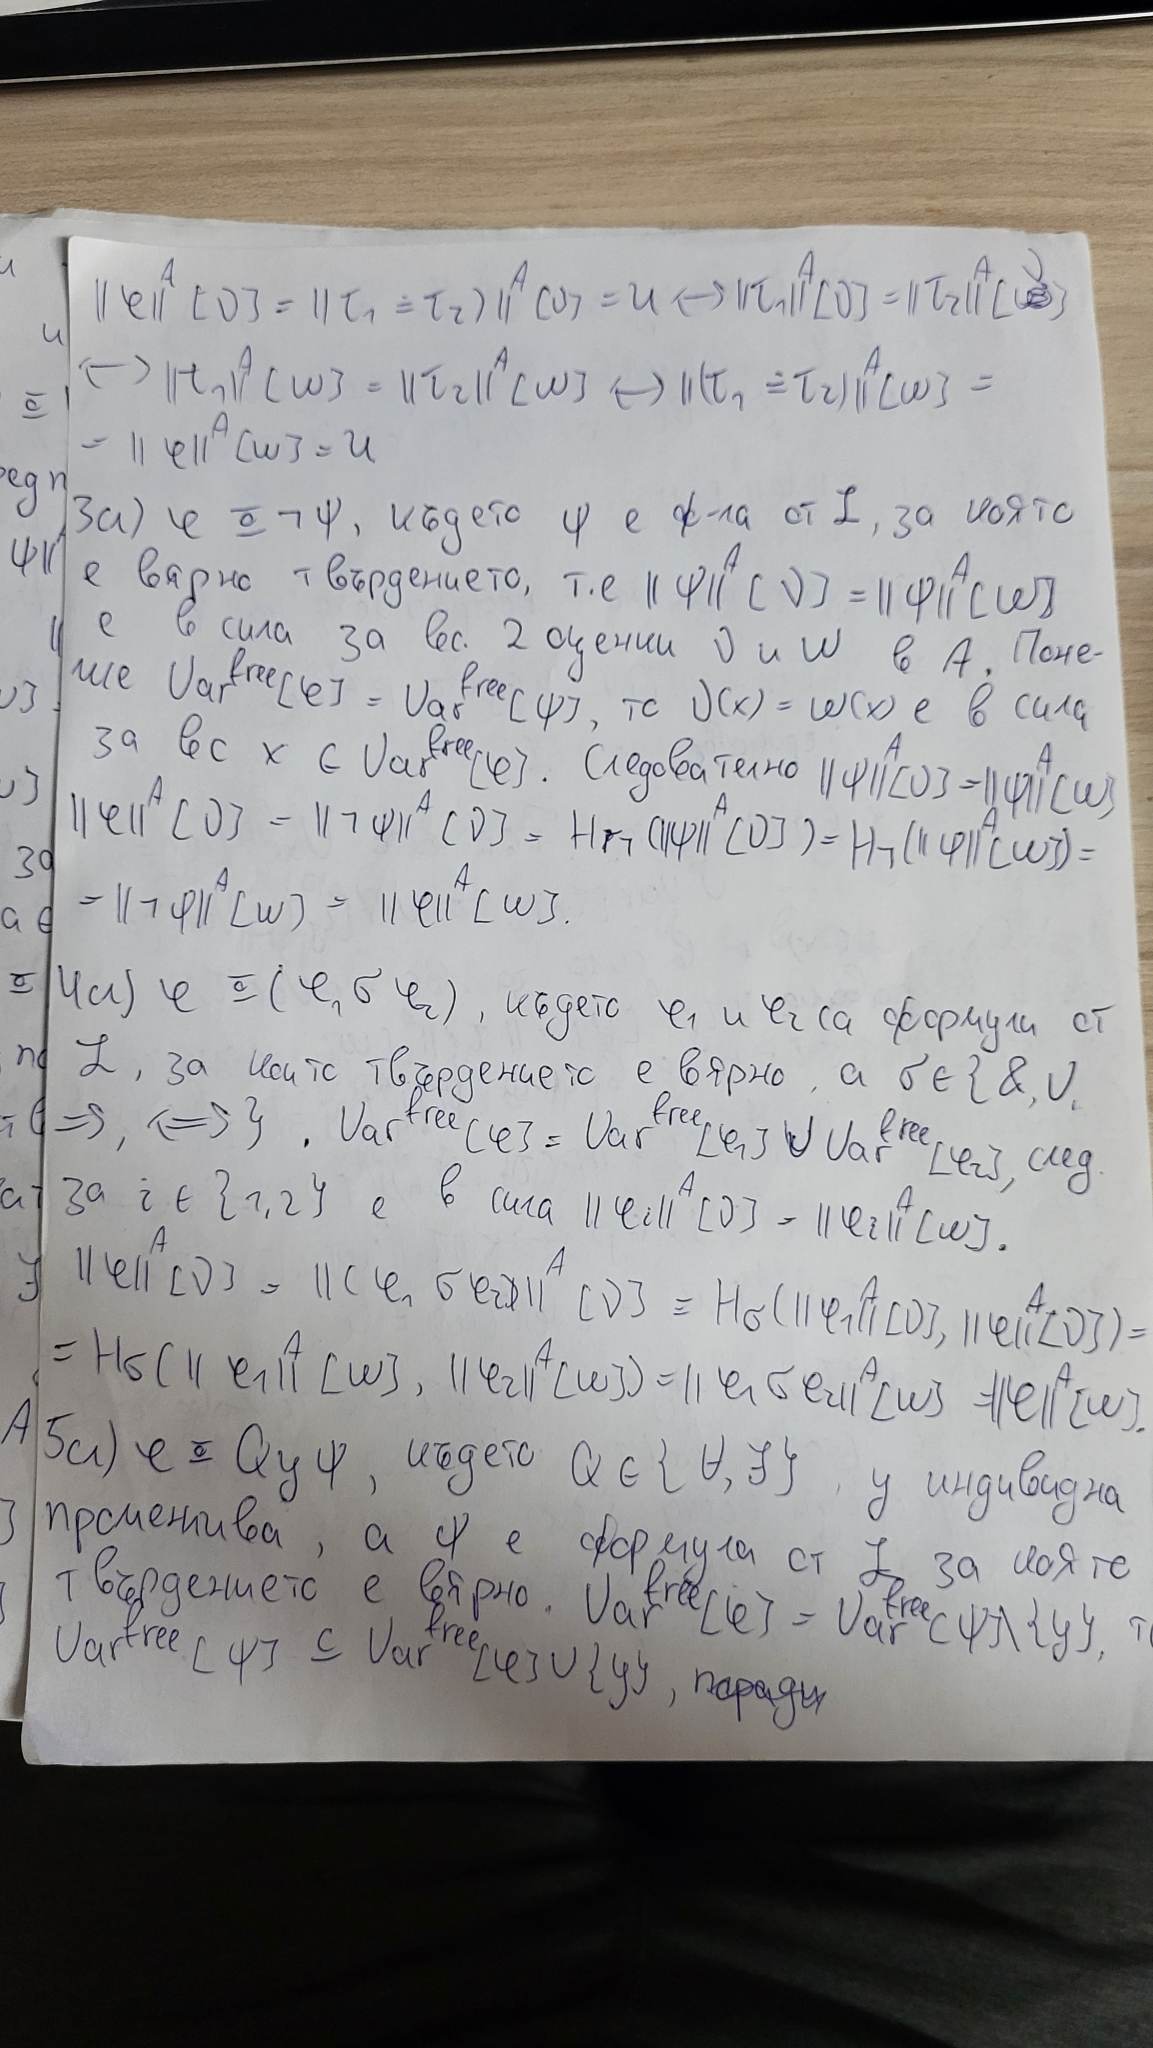 ||φ||ᴬ[ν] = ||τ₁ ≐ τ₂)||ᴬ[ν] = и ↔ ||τ₁||ᴬ[ν] = ||τ₂||ᴬ[ν]
↔ ||τ₁||ᴬ[w] = ||τ₂||ᴬ[w] ↔ ||(τ₁ ≐ τ₂)||ᴬ[w] =
= ||φ||ᴬ[w] = и
3сл) φ ≖ ¬ψ, където ψ е ф-ла от ℒ, за която
е вярно твърдението, т.е ||ψ||ᴬ[ν] = ||ψ||ᴬ[w]
е в сила за вс. 2 оценки ν и w в A. Поне-
же Varᶠʳᵉᵉ[φ] = Varᶠʳᵉᵉ[ψ], то ν(x) = w(x) е в сила
за вс x ∈ Varᶠʳᵉᵉ[φ]. Следователно ||ψ||ᴬ[ν] = ||ψ||ᴬ[w]
||φ||ᴬ[ν] = ||¬ψ||ᴬ[ν] = H¬(||ψ||ᴬ[ν]) = H¬(||ψ||ᴬ[w]) =
= ||¬ψ||ᴬ[w] = ||φ||ᴬ[w].
4сл) φ ≖ (φ₁ σ φ₂), където φ₁ и φ₂ са формули от
ℒ, за които твърдението е вярно, а σ ∈ {&, ∨,
⇒, ⇔}. Varᶠʳᵉᵉ[φ] = Varᶠʳᵉᵉ[φ₁] ∪ Varᶠʳᵉᵉ[φ₂], след.
за i ∈ {1,2} е в сила ||φᵢ||ᴬ[ν] = ||φᵢ||ᴬ[w].
||φ||ᴬ[ν] = ||(φ₁ σ φ₂)||ᴬ[ν] = Hσ(||φ₁||ᴬ[ν], ||φ||ᴬ[ν]) =
= Hσ(||φ₁||ᴬ[w], ||φ₂||ᴬ[w]) = ||φ₁ σ φ₂||ᴬ[w] = ||φ||ᴬ[w].
5сл) φ ≖ Qyψ, където Q ∈ {∀, ∃}, y индивидна
променлива, а ψ е формула от ℒ за която
твърдението е вярно. Varᶠʳᵉᵉ[φ] = Varᶠʳᵉᵉ[ψ]\{y},
Varᶠʳᵉᵉ[ψ] ⊆ Varᶠʳᵉᵉ[φ] ∪ {y}, поради